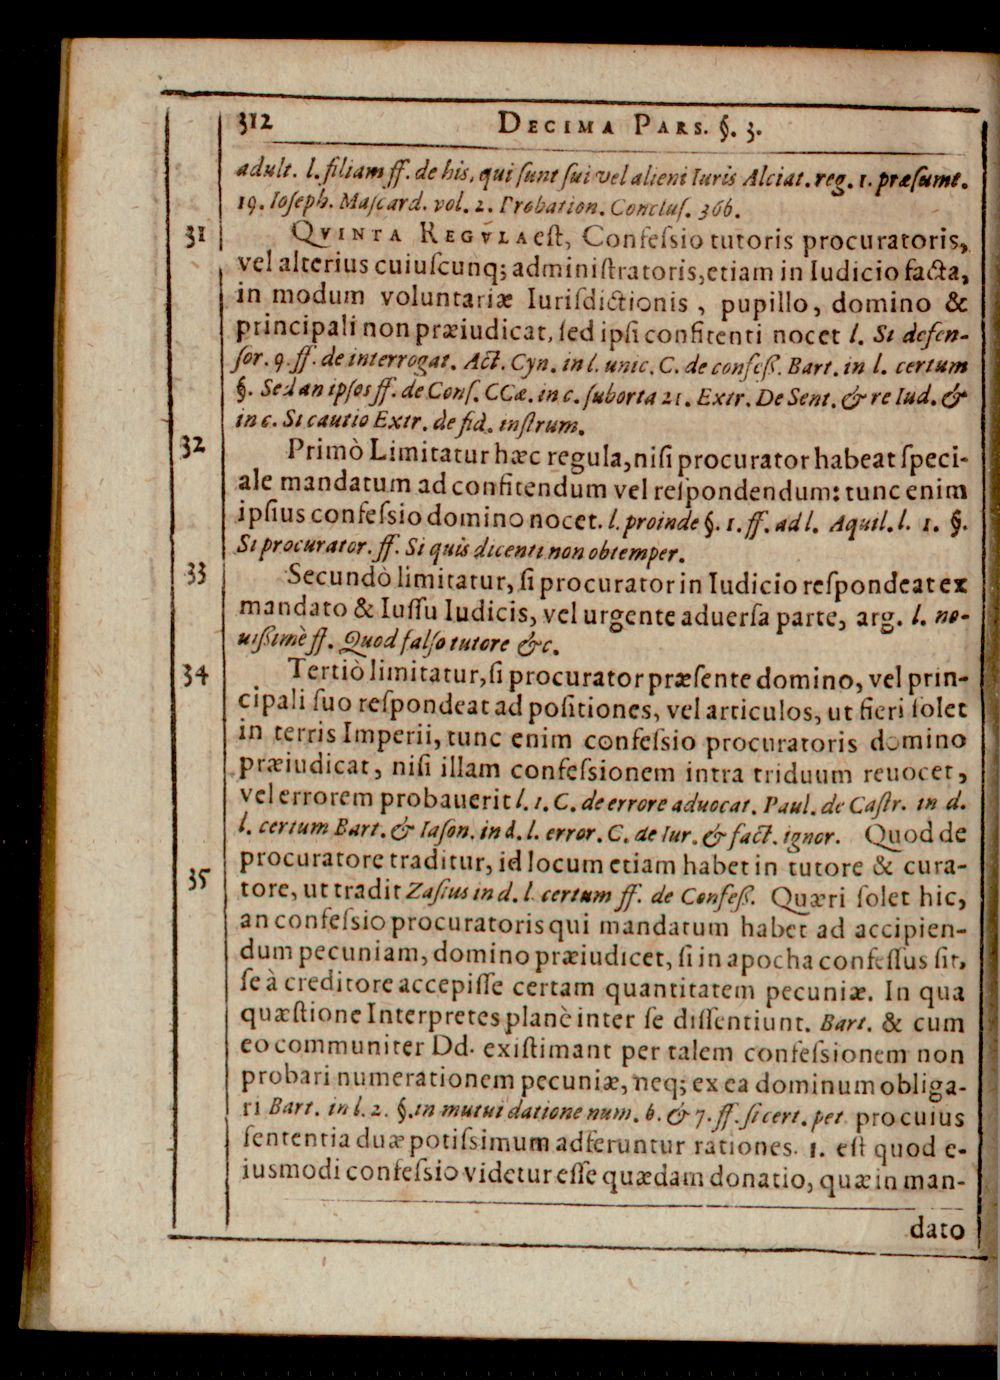 312 DECIMA PARS. §. 3.
adult. l. filiam ff. de his, qui sunt sui vel alieni Iuris Alciat. reg. 1. præsumt.
19. Ioseph. Mascard. vol. 2. Probation. Conclus. 366.
31 QVINTA REGVLA est, Confessio tutoris procuratoris,
vel alterius cuiuscunq; administratoris, etiam in Iudicio facta,
in modum voluntariæ Iurisdictionis, pupillo, domino &
principali non præiudicat, sed ipsi confitenti nocet l. Si defen-
sor. 9. ff. de interrogat. Act. Cyn. in l. unic. C. de confeß. Bart. in l. certum
§. Sed an ipsos ff. de Conf. CCæ. in c. suborta 21. Extr. De Sent. & re Iud. &
in c. Si cautio Extr. de fid. instrum.
32 Primò Limitatur hæc regula, nisi procurator habeat speci-
ale mandatum ad confitendum vel respondendum: tunc enim
ipsius confessio domino nocet. l. proinde §. 1. ff. ad l. Aquil. l. 1. §.
Si procurator. ff. Si quis dicenti non obtemper.
33 Secundò limitatur, si procurator in Iudicio respondeat ex
mandato & Iussu Iudicis, vel urgente aduersa parte, arg. l. no-
uißimè ff. Quod falso tutore &c.
34 Tertiò limitatur, si procurator præsente domino, vel prin-
cipali suo respondeat ad positiones, vel articulos, ut fieri solet
in terris Imperii, tunc enim confessio procuratoris domino
præiudicat, nisi illam confessionem intra triduum reuocet,
vel errorem probauerit l. 1. C. de errore aduocat. Paul. de Castr. in d.
l. certum Bart. & Iason. in d. l. error. C. de Iur. & fact. ignor. Quod de
procuratore traditur, id locum etiam habet in tutore & cura-
35 tore, ut tradit Zasius in d. l. certum ff. de Confeß. Quæri solet hic,
an confessio procuratoris qui mandatum habet ad accipien-
dum pecuniam, domino præiudicet, si in apocha confessus sit,
se à creditore accepisse certam quantitatem pecuniæ. In qua
quæstione Interpretes planè inter se dissentiunt. Bart. & cum
eo communiter Dd. existimant per talem confessionem non
probari numerationem pecuniæ, neq; ex ea dominum obliga-
ri Bart. in l. 2. §. in mutui datione num. 6. & 7. ff. si cert. pet pro cuius
sententia duæ potissimum adferuntur rationes. 1. est quod e-
iusmodi confessio videtur esse quædam donatio, quæ in man-
dato